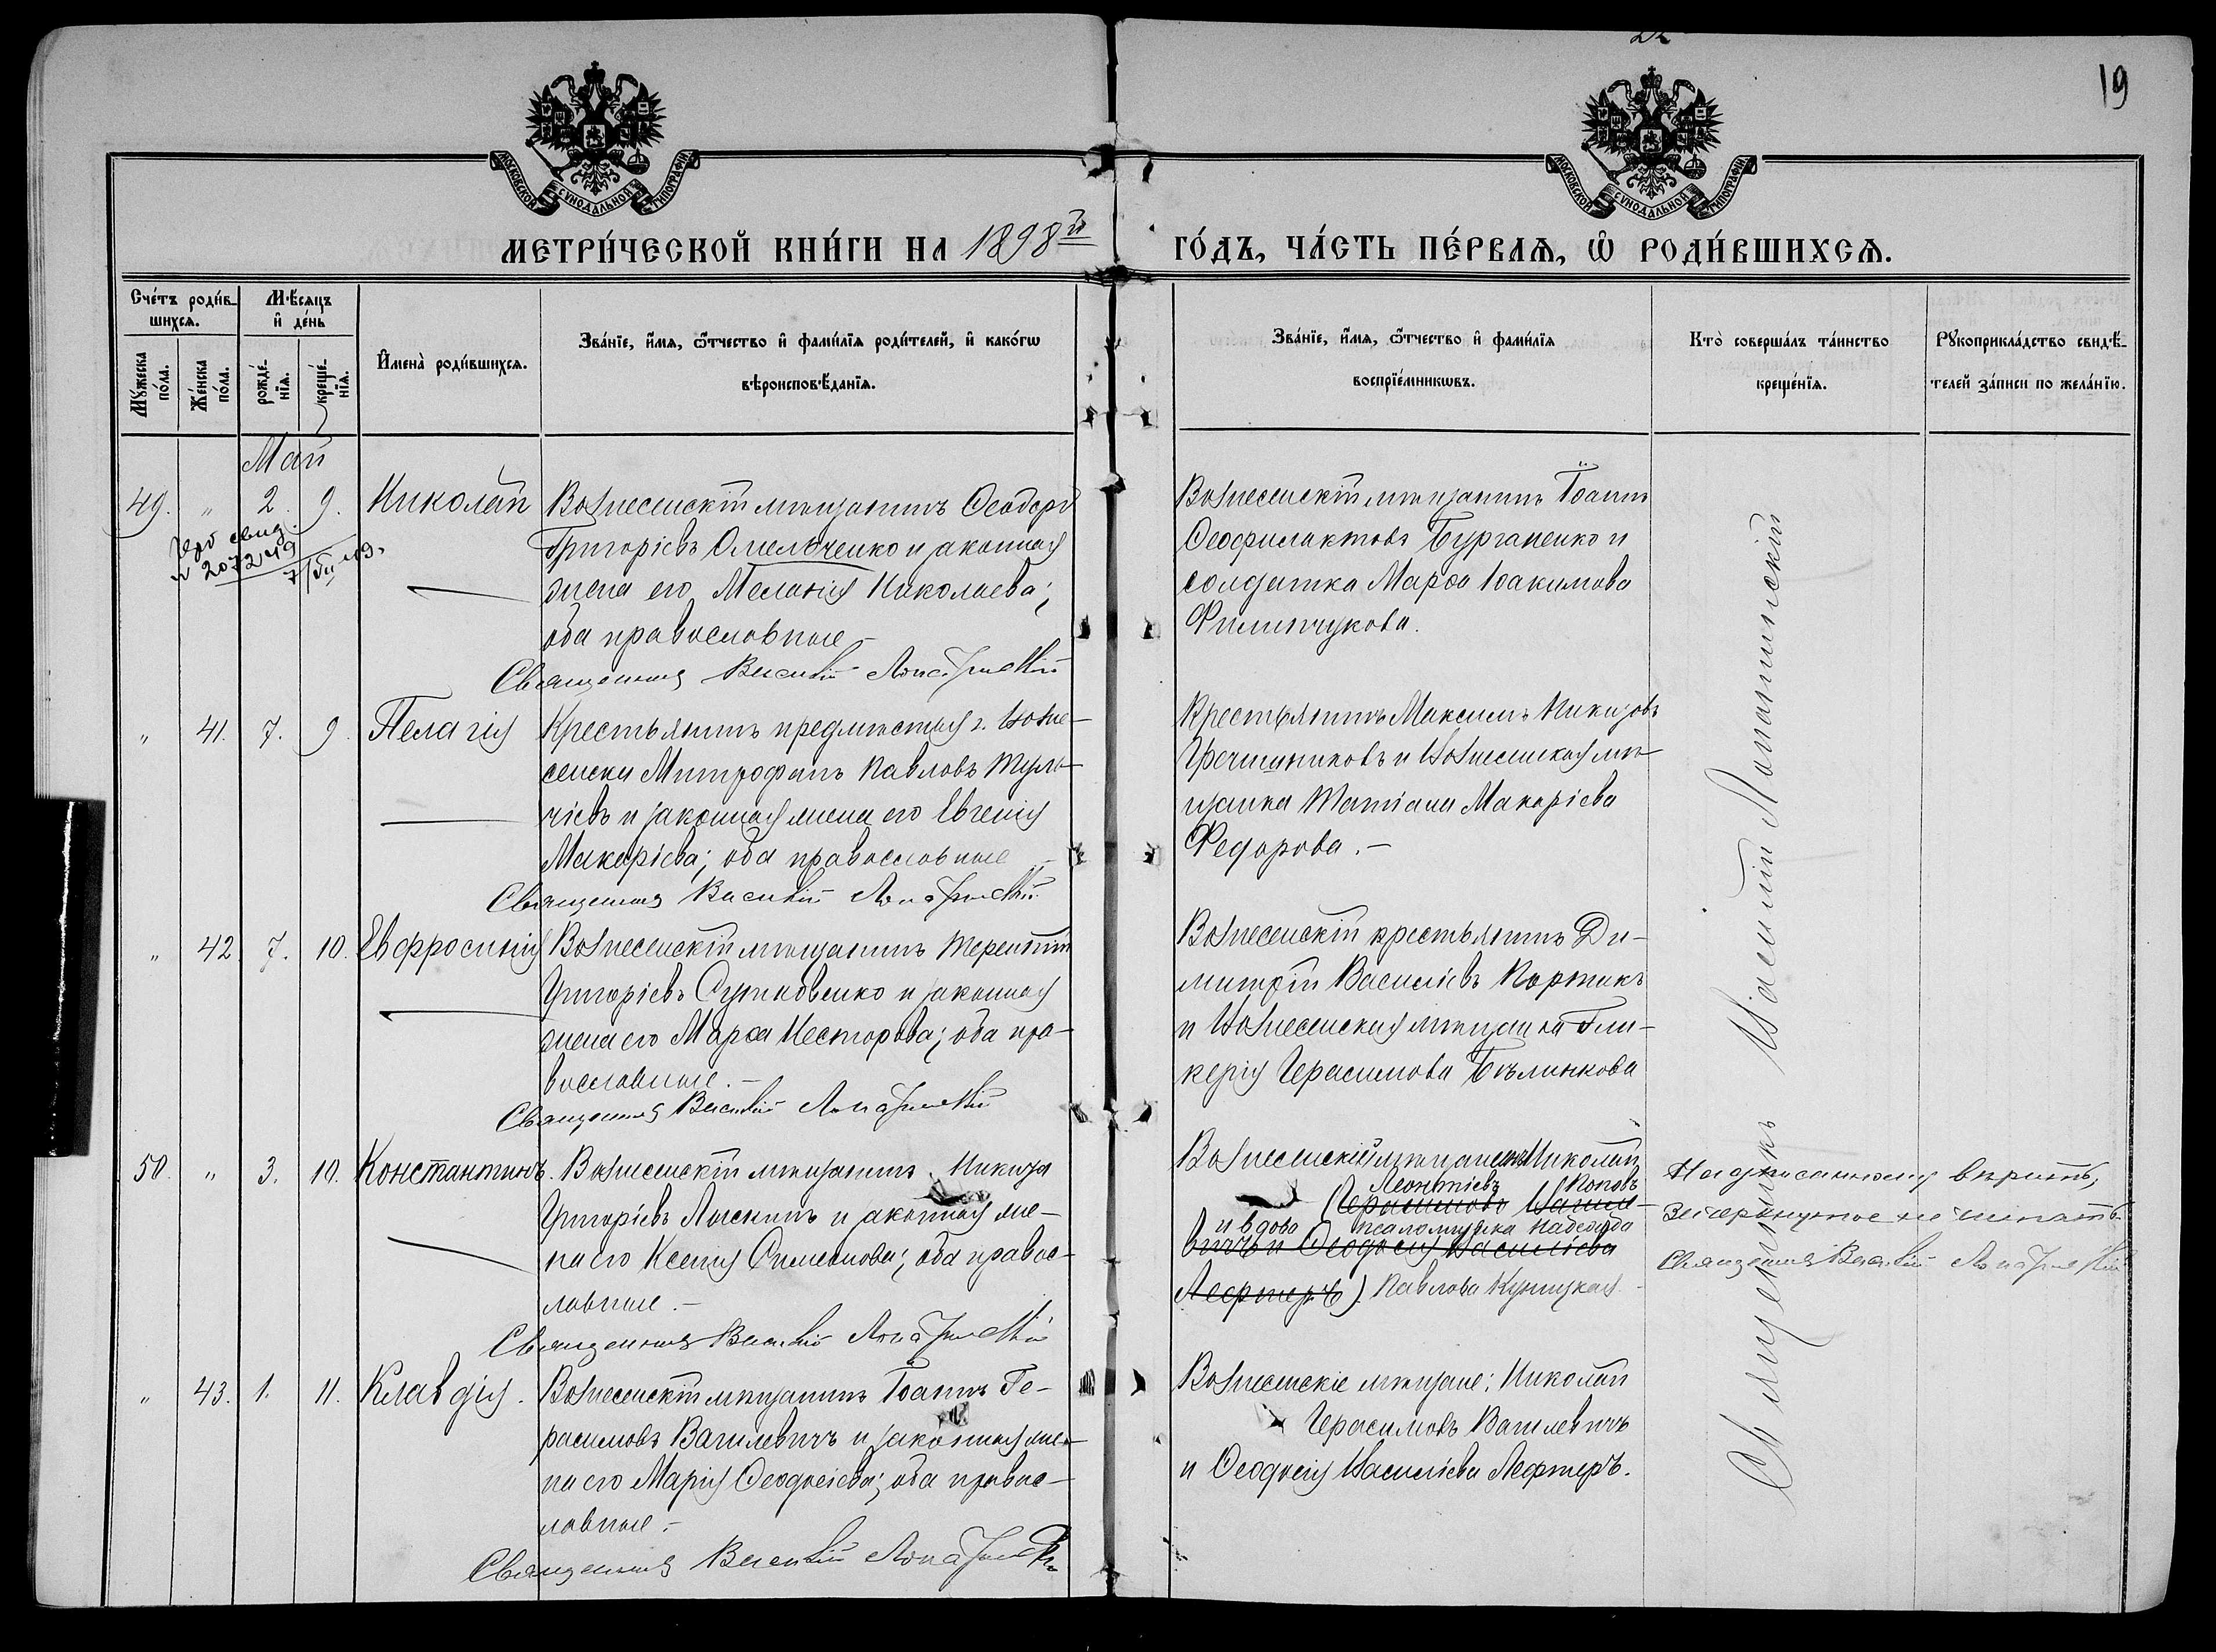 22
19
МОСКОВСКОЙ СѴНОДАЛЬНОЙ ТИПОГРАФІИ
МОСКОВСКОЙ СѴНОДАЛЬНОЙ ТИПОГРАФІИ
МЕТРИ́ЧЕСКОЙ КНИ́ГИ НА 1898й ГО́ДЪ, ЧА́СТЬ ПЕ́РВАѦ, Ѽ РОДИ́ВШИХСѦ.
Сче́тъ роди́в-
шихсѧ.
Мꙋ́жеска
по́ла.
Же́нска
по́ла.
М҆ѣсѧцъ
и҆ де́нь
рожде́-
нїѧ.
креще́-
нїѧ.
И҆мена̀ роди́вшихсѧ.
Зва́нїе, и҆́мѧ, ѻ҆́тчество и҆ фами́лїѧ роди́телей, и҆ како́гѡ
вѣроисповѣ́данїѧ.
Зва́нїе, и҆́мѧ, ѻ҆́тчество и҆ фами́лїѧ
воспрїе́мникѡвъ.
Кто̀ соверша́лъ та́инство
креще́нїѧ.
Рꙋкоприкла́дство свидѣ́-
телей за́писи по жела́нїю.
Май
49. „ 2. 9. Николай
свид.
№ 20724
Вознесенскій мѣщанинъ Ѳеодоръ
Григоріевъ Омельченко и законная
жена его Меланія Николаева;
оба православные –
Священникъ Василій Лопатинскій
Вознесенскій мѣщанинъ Іоаннъ
Ѳеофилактовъ Бурганенко и
солдатка Марѳа Іоакимова
Филипчукова.
„ 41. 7. 9. Пелагія
Крестьянинъ предмѣстья г. Возне-
сенска Митрофанъ Павловъ Туль-
чіевъ и законная жена его Евгенія
Макаріева; оба православные –
Священникъ Василій Лопатинскій
Крестьянинъ Максимъ
Гречишниковъ и Вознесенская мѣ-
щанка Татіана Макаріева
Федорова. –
„ 42. 7. 10. Евфросинія
Вознесенскій мѣщанинъ Терентій
Григоріевъ и законная
жена его Марѳа Несторова; оба пра-
вославные. –
Священникъ Василій Лопатинскій
Вознесенскій крестьянинъ Ди-
митрій Василіевъ Портикъ
и Вознесенская мѣщанка Гли-
керія Герасимова Бѣлинкова
50. „ 3. 10. Константинъ.
Вознесенскій мѣщанинъ Никита
Григоріевъ Лыскинъ и законная же-
на его Ксенія Симеонова; оба правос-
лавные. –
Священникъ Василій Лопатинскій
Вознесенскій мѣщанинъ Николай
Леонтіевъ Поповъ
(Герасимовъ Вагиле-
и вдова псаломщика Надежда
вичъ и Ѳеодосія Василіева
Лефтеръ). Павлова Куницкая –
Надписанному вѣрить,
зачеркнутое не читать
Священникъ Василій Лопатинскій
„ 43. 1. 11. Клавдія.
Вознесенскій мѣщанинъ Іоаннъ Ге-
расимовъ Вагилевичъ и законная же-
на его Марія Ѳеодосіева; оба правос-
лавные. –
Священникъ Василій Лопатинскій
Вознесенскіе мѣщане: Николай
Герасимовъ Вагилевичъ
и Ѳеодосія Василіева Лефтеръ.
Священникъ Василій Лопатинскій